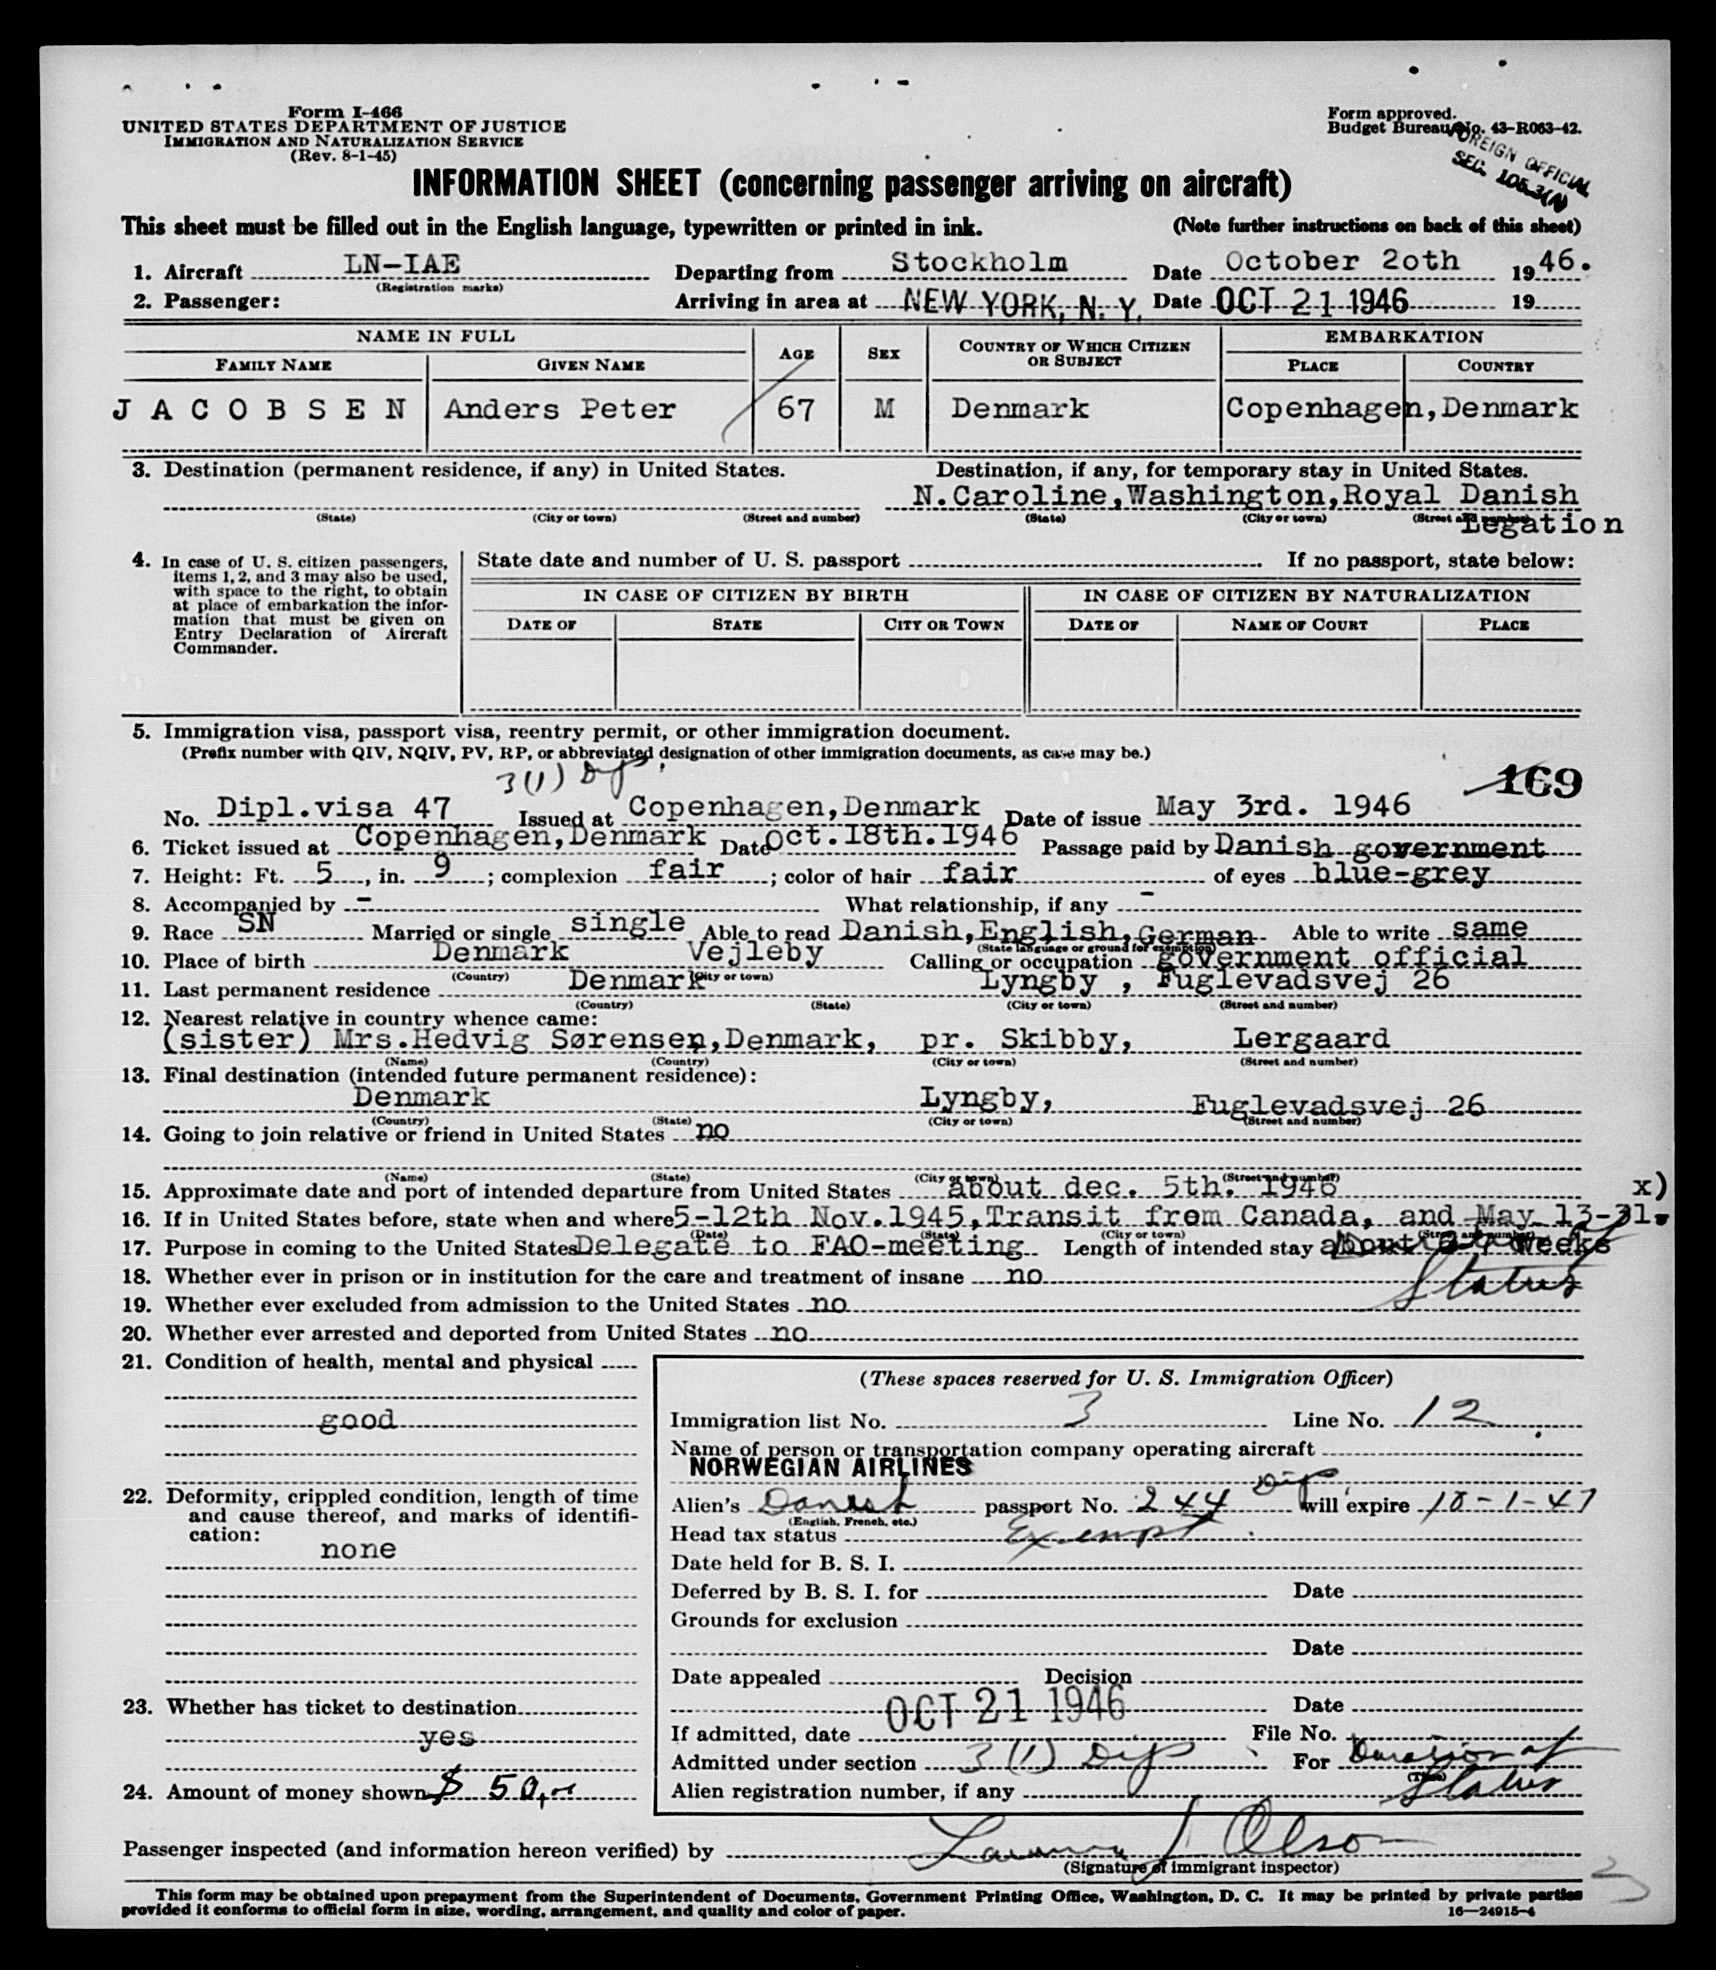 Form I-466
UNITED STATES DEPARTMENT OF JUSTICE
IMMIGRATION AND NATURALIZATION SERVICE
(Rev. 8-1-45)
Form approved.
Budget Bureau No. 43-R063-42.
FOREIGN OFFICIAL
SEC. 105.3(N)
INFORMATION SHEET (concerning passenger arriving on aircraft)
This sheet must be filled out in the English language, typewritten or printed in ink. (Note further instructions on back of this sheet)
1. Aircraft LN-IAE Departing from Stockholm Date October 20th 1946.
(Registration marks)
2. Passenger: Arriving in area at NEW YORK, N. Y. Date OCT 21 1946 19
NAME IN FULL AGE SEX COUNTRY OF WHICH CITIZEN OR SUBJECT EMBARKATION
FAMILY NAME GIVEN NAME PLACE COUNTRY
JACOBSEN Anders Peter 67 M Denmark Copenhagen, Denmark
3. Destination (permanent residence, if any) in United States. Destination, if any, for temporary stay in United States.
N.Caroline,Washington,Royal Danish
Legation
(State) (City or town) (Street and number) (State) (City or town) (Street and number)
4. In case of U. S. citizen passengers, items 1, 2, and 3 may also be used, with space to the right, to obtain at place of embarkation the information that must be given on Entry Declaration of Aircraft Commander.
State date and number of U. S. passport If no passport, state below:
IN CASE OF CITIZEN BY BIRTH IN CASE OF CITIZEN BY NATURALIZATION
DATE OF STATE CITY OR TOWN DATE OF NAME OF COURT PLACE
5. Immigration visa, passport visa, reentry permit, or other immigration document.
(Prefix number with QIV, NQIV, PV, RP, or abbreviated designation of other immigration documents, as case may be.)
3(1) Dip. 169
No. Dipl.visa 47 Issued at Copenhagen,Denmark Date of issue May 3rd. 1946
6. Ticket issued at Copenhagen,Denmark Date Oct.18th.1946 Passage paid by Danish government
7. Height: Ft. 5, in. 9; complexion fair; color of hair fair of eyes blue-grey
8. Accompanied by - What relationship, if any -
9. Race SN Married or single single Able to read Danish,English,German Able to write same
(State language or ground for exemption)
10. Place of birth Denmark Vejleby Calling or occupation government official
(Country) (City or town)
11. Last permanent residence Denmark Lyngby , Fuglevadsvej 26
(Country) (State) (City or town) (Street and number)
12. Nearest relative in country whence came:
(sister) Mrs.Hedvig Sørensen,Denmark, pr. Skibby, Lergaard
(Name) (Country) (City or town) (Street and number)
13. Final destination (intended future permanent residence):
Denmark Lyngby, Fuglevadsvej 26
(Country) (State) (City or town) (Street and number)
14. Going to join relative or friend in United States no
(Name) (State) (City or town) (Street and number)
15. Approximate date and port of intended departure from United States about dec. 5th. 1946 x)
16. If in United States before, state when and where 5-12th Nov.1945,Transit from Canada, and May 13-31.
(Date) (State) (City or town) (Street and number)
17. Purpose in coming to the United States Delegate to FAO-meeting Length of intended stay about weeks
Status
18. Whether ever in prison or in institution for the care and treatment of insane no
19. Whether ever excluded from admission to the United States no
20. Whether ever arrested and deported from United States no
21. Condition of health, mental and physical
good
22. Deformity, crippled condition, length of time and cause thereof, and marks of identification:
none
23. Whether has ticket to destination
yes
24. Amount of money shown $ 50,-
(These spaces reserved for U. S. Immigration Officer)
Immigration list No. 3 Line No. 12
Name of person or transportation company operating aircraft
NORWEGIAN AIRLINES
Alien's Danish passport No. 244 Dip. will expire 18-1-47
(English, French, etc.)
Head tax status Exempt
Date held for B. S. I.
Deferred by B. S. I. for Date
Grounds for exclusion
Date
Date appealed Decision
Date
If admitted, date OCT 21 1946 File No.
Admitted under section 3 (1) Dip For Duration of
(Time)
Alien registration number, if any Status
Passenger inspected (and information hereon verified) by J Olson
(Signature of immigrant inspector)
This form may be obtained upon prepayment from the Superintendent of Documents, Government Printing Office, Washington, D. C. It may be printed by private parties
provided it conforms to official form in size, wording, arrangement, and quality and color of paper.
16—24915-4